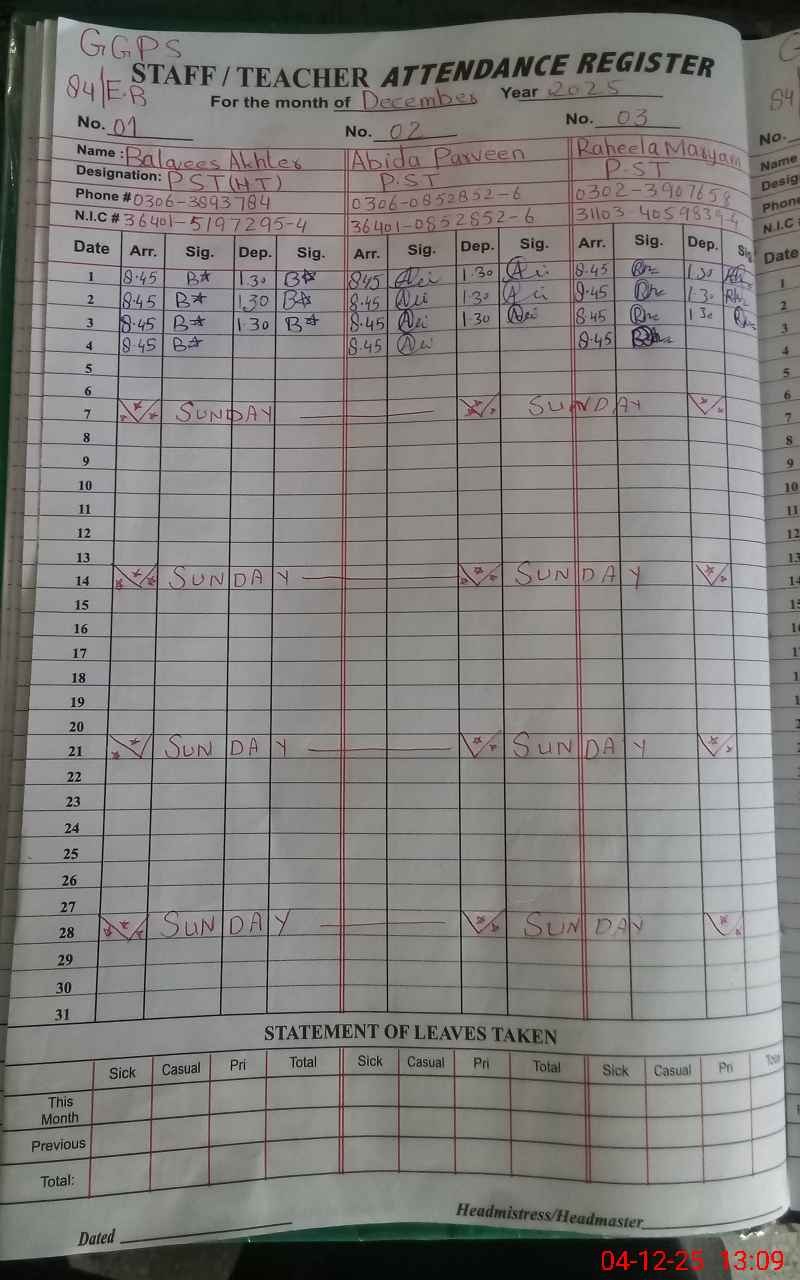 GGPS
84/E.B
STAFF / TEACHER ATTENDANCE REGISTER
For the month of December Year 2025
No. 01 No. 02 No. 03
Name : Balqees Akhter Abida Parveen Raheela Maryam
Designation: PST(H.T) P.ST P.ST
Phone # 0306-3893784 0306-0852852-6 0302-3907658
N.I.C # 36401-5197295-4 36401-0852852-6 31103-4059839-4
Date Arr. Sig. Dep. Sig. Arr. Sig. Dep. Sig. Arr. Sig. Dep. Sig
1 8.45 1.30 8.45 1.30 8.45 1.30
2 8.45 1.30 8.45 1.30 8.45 1.30
3 8.45 1.30 8.45 1.30 8.45 1.30
4 8.45 8.45 8.45
5
6
7 SUNDAY SUNDAY
8
9
10
11
12
13
14 SUNDAY SUNDAY
15
16
17
18
19
20
21 SUNDAY SUNDAY
22
23
24
25
26
27
28 SUNDAY SUNDAY
29
30
31
STATEMENT OF LEAVES TAKEN
Sick Casual Pri Total Sick Casual Pri Total Sick Casual Pri Total
This
Month
Previous
Total:
Dated Headmistress/Headmaster
84
No.
Name
Desig
Phone
N.I.C
Date
1
2
3
4
5
6
7
8
9
10
11
12
13
14
04-12-25 13:09